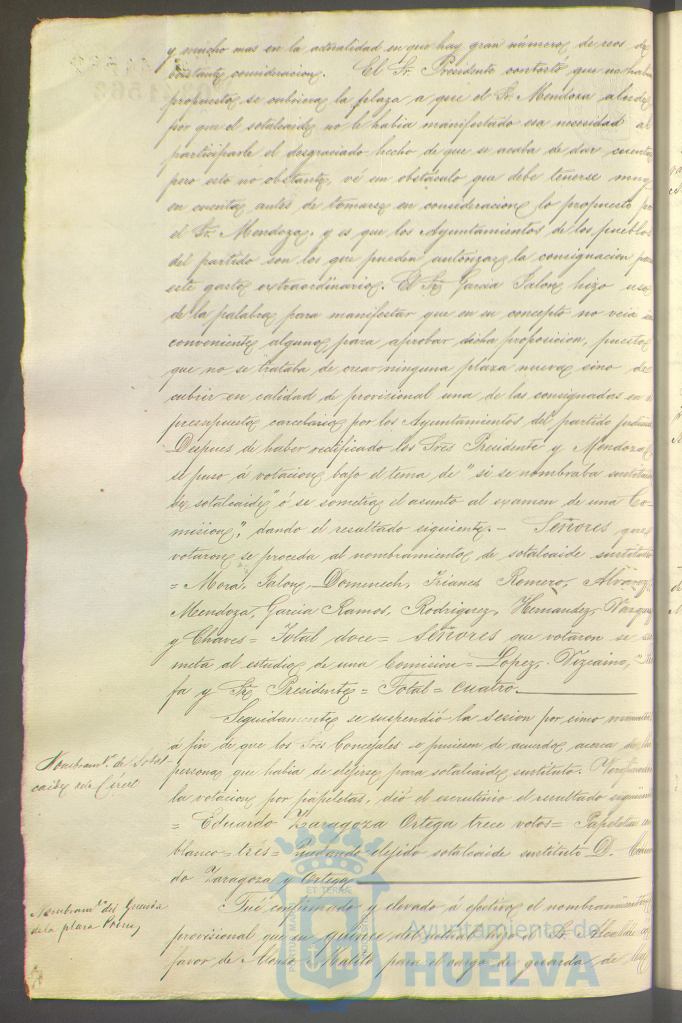 y mucho mas en la actualidad en que hay gran número de reos de
bastante consideracion. El Sr. Presidente contestó que no habia
propuesto se cubriera la plaza a que el Sr. Mendoza alude
por que el sotalcaide no le habia manifestado esa necesidad al
participarle el desgraciado hecho de que se acaba de dar cuenta
pero esto no obstante, vé un obstáculo que debe tenerse muy
en cuenta antes de tomarse en consideracion lo propuesto por
el Sr. Mendoza, y es que los Ayuntamientos de los pueblos
del partido son los que pueden autorizar la consignacion para
este gasto extraordinario. El Sr. Garcia Jalon hizo uso
de la palabra para manifestar que en su concepto no veia in
conveniente alguno para aprobar dicha proposicion, puesto
que no se trataba de crear ninguna plaza nueva sino de
cubrir en calidad de provisional una de las consignadas en el
presupuesto carcelario por los Ayuntamientos del partido judicial
Despues de haber rectificado los Sres Presidente y Mendoza
se puso á votacion bajo el tema de "si se nombraba sustituto
de sotalcaide" ó se sometia el asunto al examen de una Co-
mision", dando el resultado siguiente. - Señores que
votaron se proceda al nombramiento de sotalcaide sustituto
= Mora, Jalon, Domenech, Trianes Romero, Alvarez,
Mendoza, Garcia Ramos, Rodriguez, Hernandez, Vargas
y Chaves = Total doce = Señores que votaron se so
meta al estudio de una Comision = Lopez, Vizcaino,
fa y Sr. Presidente = Total = cuatro.
Seguidamente se suspendió la sesion por cinco minutos
á fin de que los Sres Concejales se pusiesen de acuerdo acerca de la
Nombramto. de Sotal-
caide de la Cárcel
persona que habia de elejirse para sotalcaide sustituto. Verificada
la votacion por papeletas, dió el escrutinio el resultado siguiente
= Eduardo Zaragoza Ortega trece votos = Papeletas en
blanco = tres = Quedando elejido sotalcaide sustituto D. Eduar
do Zaragoza y Ortega
Nombramto. del Guarda
de la plaza
Fué confirmado y elevado á efectivo el nombramiento
provisional que en quince del actual hizo el Sr. Alcalde a
favor de Alonso Malito para el cargo de guarda de la
Ayuntamiento de
HUELVA